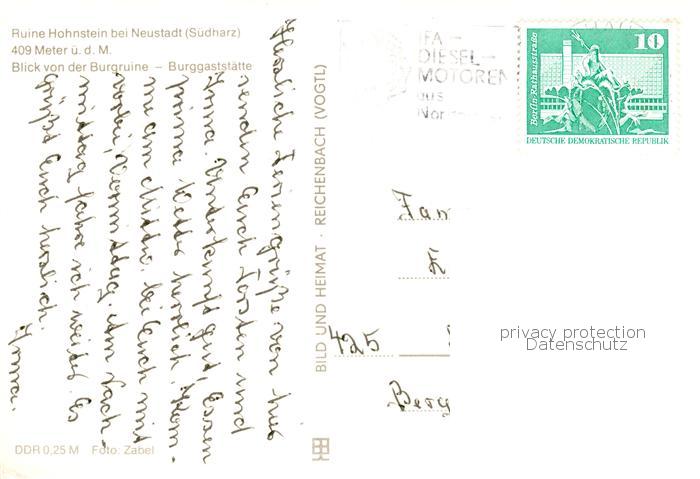 Ruine Hohnstein bei Neustadt (Südharz)
409 Meter ü. d. M.
Blick von der Burgruine – Burggaststätte
Herzliche Feriengrüße von hier
senden Euch Torsten und
Anna. Unterkunft gut, Essen
prima Wetter herrlich. Kom-
me am Mittw. bei Euch mit
vorbei, Vormittag. Am Nach-
mittag fahre ich weiter. Es
grüßt Euch herzlich.
Anna.
DDR 0,25 M Foto: Zabel
BILD UND HEIMAT · REICHENBACH (VOGTL)
IFA –
DIESEL –
MOTOREN
aus
Nor
Berlin-Rathausstraße
10
DEUTSCHE DEMOKRATISCHE REPUBLIK
Fam
425
Berg
privacy protection
Datenschutz